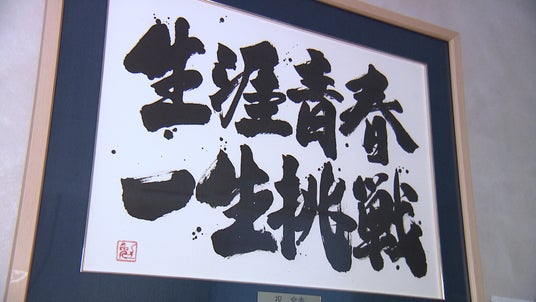 生涯青春
一生挑戦